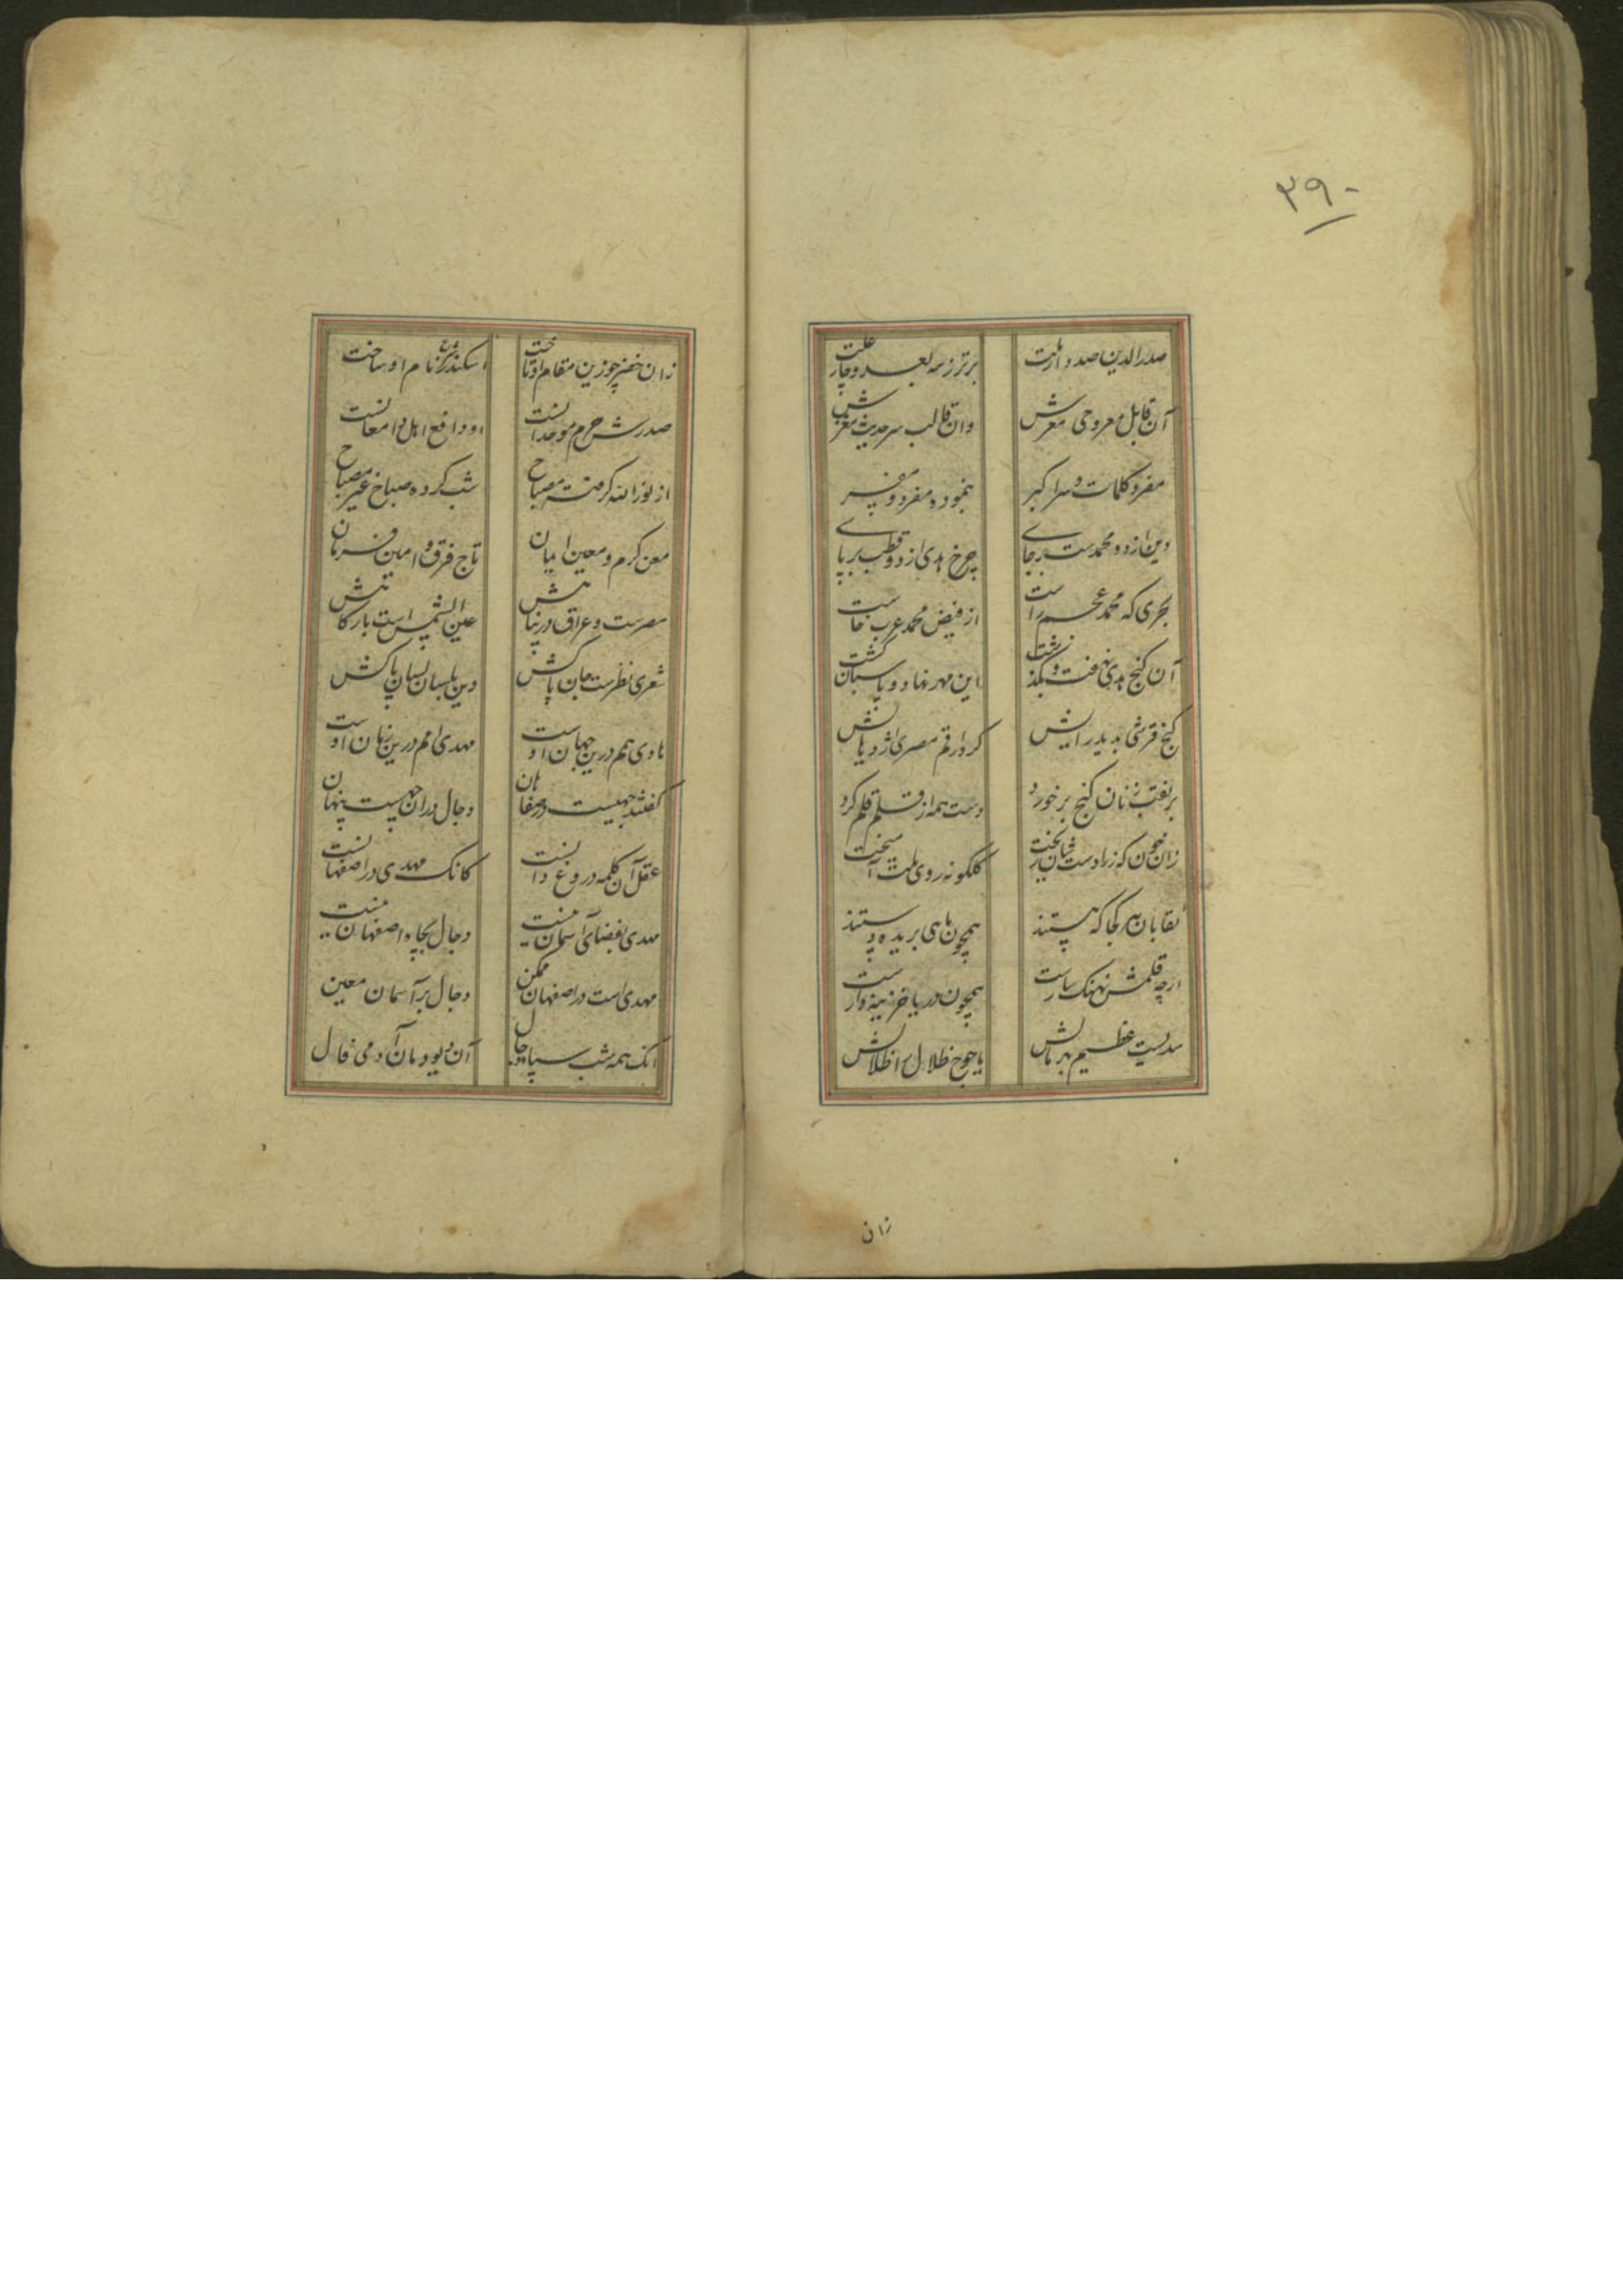 ۳۹۰
صدرالدین صدر
برتر ز سه بعد و چار علت
آن قابل معروحی معرش
وان قالب سر حدیث
مفرد کلمات و سر اکبر
بنموده مفرد و مفسر
دین از دو محمدست بر جای
چرخ هدی از دو قطب بر پای
بحری که محمد عجم راست
از فیض محمد عرب خاست
آن گنج هدی نهفت و بگذشت
این مهر نهاد و پاسبان گشت
گنج قرشی بدید رایش
کرد از قلم مصری اژدهایش
بر نقب زنان گنج بر خورد
دست همه از قلم قلم کرد
زان خون که ز راد دستشان ریخت
گلگونه روی ملت آمیخت
نقابان هر کجا که هستند
همچون ماهی بریده دستند
ارچه قلمش نهنگ آساست
همچون دریا خزینه دار است
سدیست عظیم بهر مالش
یاجوج ظلال را ظلالش
زان
زان خضر چو زین مقام او تاخت
اسکندر نام او ساخت
صدرش حرم موحدانست
او دافع اهل دامغانست
از نور الله گرفته مصباح
شب کرده صباح غیر مصباح
معن کرم و معین ایمان
تاج فرق و امین فرمان
مصرست و عراق در بنانش
عین الشمس است بارگاهش
شعری نظرست جان پاکش
وین بلسان لسان پاکش
هادی همم درین جهان اوست
مهدی امم درین زمان اوست
گفتند جهیست در صفاهان
دجال در آن چهست پنهان
عقل آن کلمه دروغ دانست
کانک مهدی در اصفهانست
مهدی بفضای آسمان نیست
دجال بچاه اصفهان نیست
مهدی است در اصفهان ممکن
دجال بر آسمان معین
آنک همه شب سپاه دجال
آن دیو دمان آدمی فال